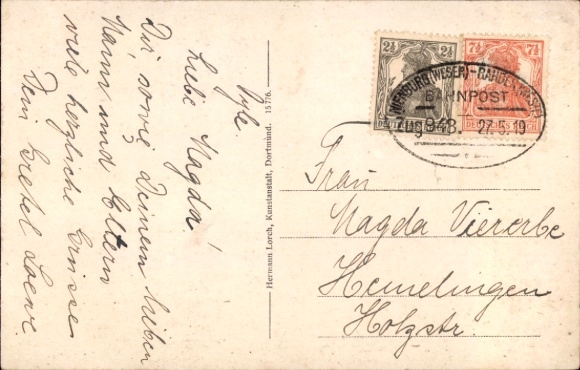 Syke.
Liebe Magda!
Dir sowie Deinem lieben
Mann und Eltern
viele herzliche Grüsse
Dein Gretel Loewe
Hermann Lorch, Kunstanstalt, Dortmund. 15776.
2½ 2½
7½ 7½
DEUTSCHES REICH
NIENBURG (WESER)-RAHDEN (WESTF)
BAHNPOST
ZUG 948. 27.5.19
Frau
Magda Viererbe
Hemelingen
Holzstr.